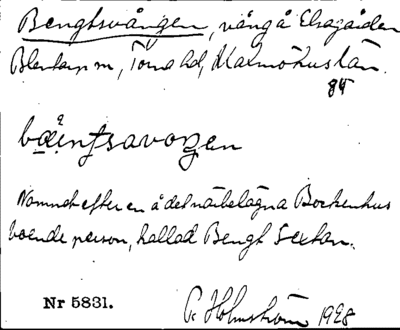 Bengtsvången, vång å Elsagården
Blentarp sn, Torna hd, Malmöhus län.
84
bäi̯ŋ̊tsavoŋen
Namnet efter en å det närbelägna Bockenhus
boende person, kallad Bengt Sextan.
Nr 5831. P. Holmström 1928